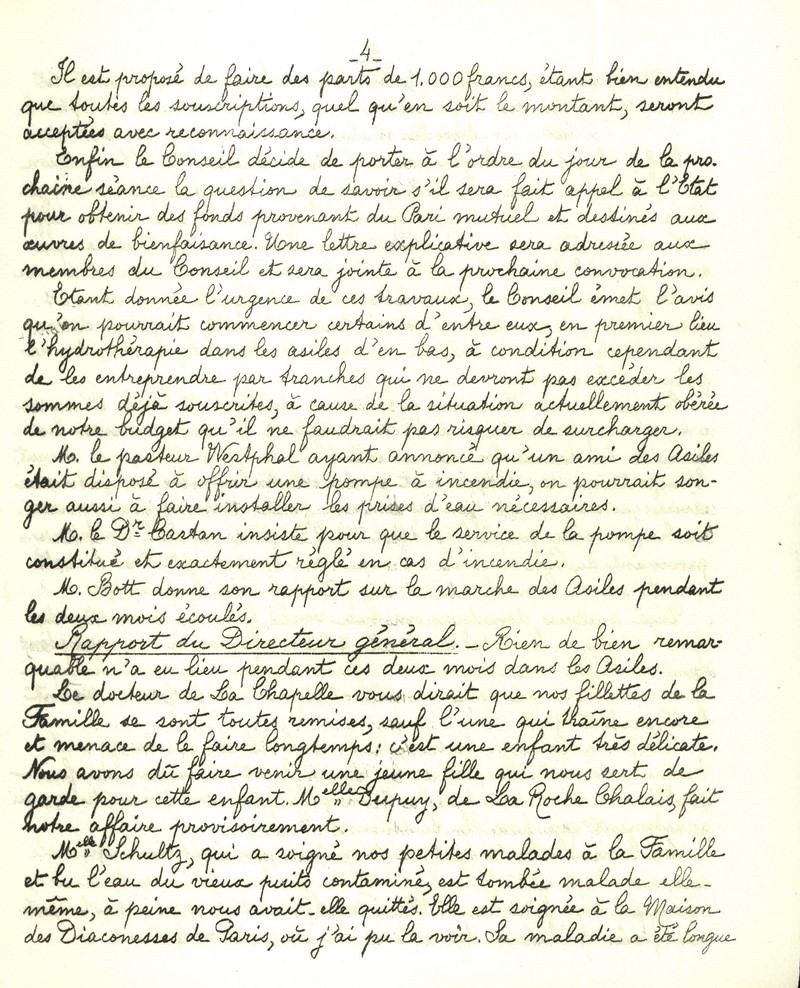 _4_
Il est proposé de faire des parts de 1.000 francs, étant bien entendu
que toutes les souscriptions, quel qu'en soit le montant, seront
acceptées avec reconnaissance.
Enfin le Conseil décide de porter à l'ordre du jour de la pro-
chaine séance la question de savoir s'il sera fait appel à l'Etat
pour obtenir des fonds provenant du Pari mutuel et destinés aux
œuvres de bienfaisance. Une lettre explicative sera adressée aux
membres du Conseil et sera jointe à la prochaine convocation.
Etant donnée l'urgence de ces travaux, le Conseil émet l'avis
qu'on pourrait commencer certains d'entre eux, en premier lieu
l'hydrothérapie dans les asiles d'en bas, à condition cependant
de les entreprendre par tranches qui ne devront pas excéder les
sommes déjà souscrites, à cause de la situation actuellement obérée
de notre budget qu'il ne faudrait pas risquer de surcharger.
M. le pasteur Westphal ayant annoncé qu'un ami des Asiles
était disposé à offrir une pompe à incendie, on pourrait son-
ger aussi à faire installer les prises d'eau nécessaires.
M. le Dr Castan insiste pour que le service de la pompe soit
constitué et exactement réglé en cas d'incendie.
M. Bott donne son rapport sur la marche des Asiles pendant
les deux mois écoulés.
Rapport du Directeur général. _ Rien de bien remar-
quable n'a eu lieu pendant ces deux mois dans les Asiles.
Le docteur de La Chapelle vous dirait que nos fillettes de la
Famille se sont toutes remises, sauf l'une qui traîne encore
et menace de le faire longtemps: c'est une enfant très délicate.
Nous avons dû faire venir une jeune fille qui nous sert de
garde pour cette enfant. Melle Dupuy, de La Roche Chalais, fait
notre affaire provisoirement.
Melle Schultz, qui a soigné nos petites malades à la Famille
et bu l'eau du vieux puits contaminé, est tombée malade elle-
même, à peine nous avait-elle quittés. Elle est soignée à la Maison
des Diaconesses de Paris, où j'ai pu la voir. Sa maladie a été longue